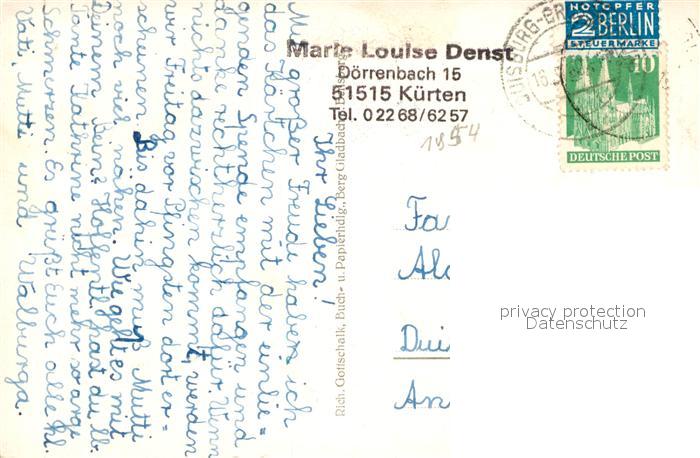 Ihr Lieben!
M großer Freude haben ich
das Kärtchen mit der einlie=
genden Spende empfangen und
danke recht herzlich dafür. Wenn
nichts dazwischen kommt, werden
wir Freitag vor Pfingsten dort er=
scheinen. Bis dahin muß Mutti
noch viel nähen. Wie geht es mit
Deinem Bein? Hoffentlich hast du lb.
Tante Kathrine nicht mehr so arge
Schmerzen. Es grüßt Euch alle hl.
Vati, Mutti und Walburga.
Marie Louise Denst
Dörrenbach 15
51515 Kürten
Tel. 0 22 68/62 57
1954
Rich. Gottschalk, Buch- u. Papierhdlg., Berg Gladbach
DUISBURG
16.
NOTOPFER
2 BERLIN
STEUERMARKE
10
DEUTSCHE POST
Fa
Al
Dui
An
privacy protection
Datenschutz